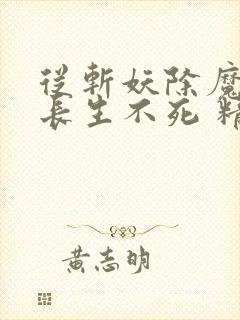 從斬妖除魔
長生不死 精
黃志明